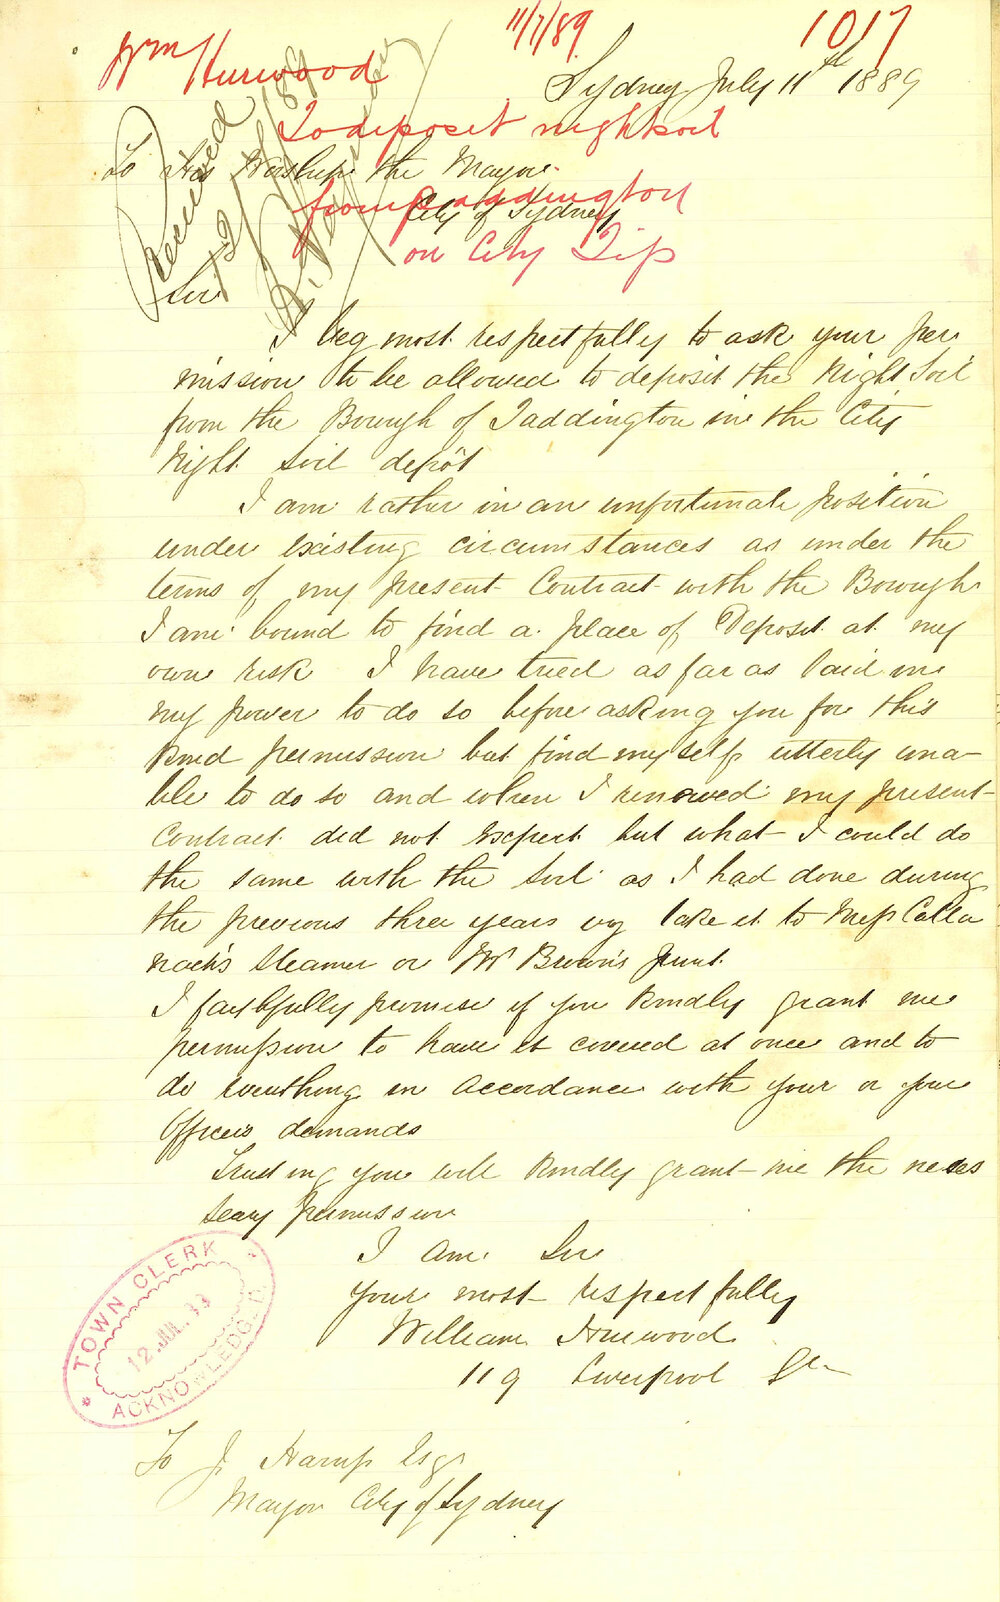 11/7/89 1017
Wm Hurwood
Sydney July 11th 1889
To deposit nightsoil
To His Worship the Mayor
from Paddington
City of Sydney
on City Tip
Received
Sir
I beg most respectfully to ask your per
mission to be allowed to deposit the Night Soil
from the Borough of Paddington in the City
Night Soil depôt
I am rather in an unfortunate position
under existing circumstances as under the
terms of my present Contract with the Borough
I am bound to find a place of Deposit at my
own risk I have tried as far as laid in
my power to do so before asking you for this
kind permission but find myself utterly una-
ble to do so and when I renewed my present
Contract did not expect but what I could do
the same with the Soil as I had done during
the previous three years vg take it to Messrs Calla
nack's Steamer or Mr Brown's punt.
I faithfully promise if you kindly grant me
permission to have it covered at once and to
do everything in accordance with your or your
Officers demands
Trusting you will kindly grant me the neces
seary permission
I am Sir
your most respectfully
William Hurwood
119 Liverpool St
TOWN CLERK
12.JUL.
ACKNOWLEDG.D.
To J. Harris Esqr
Mayor City of Sydney